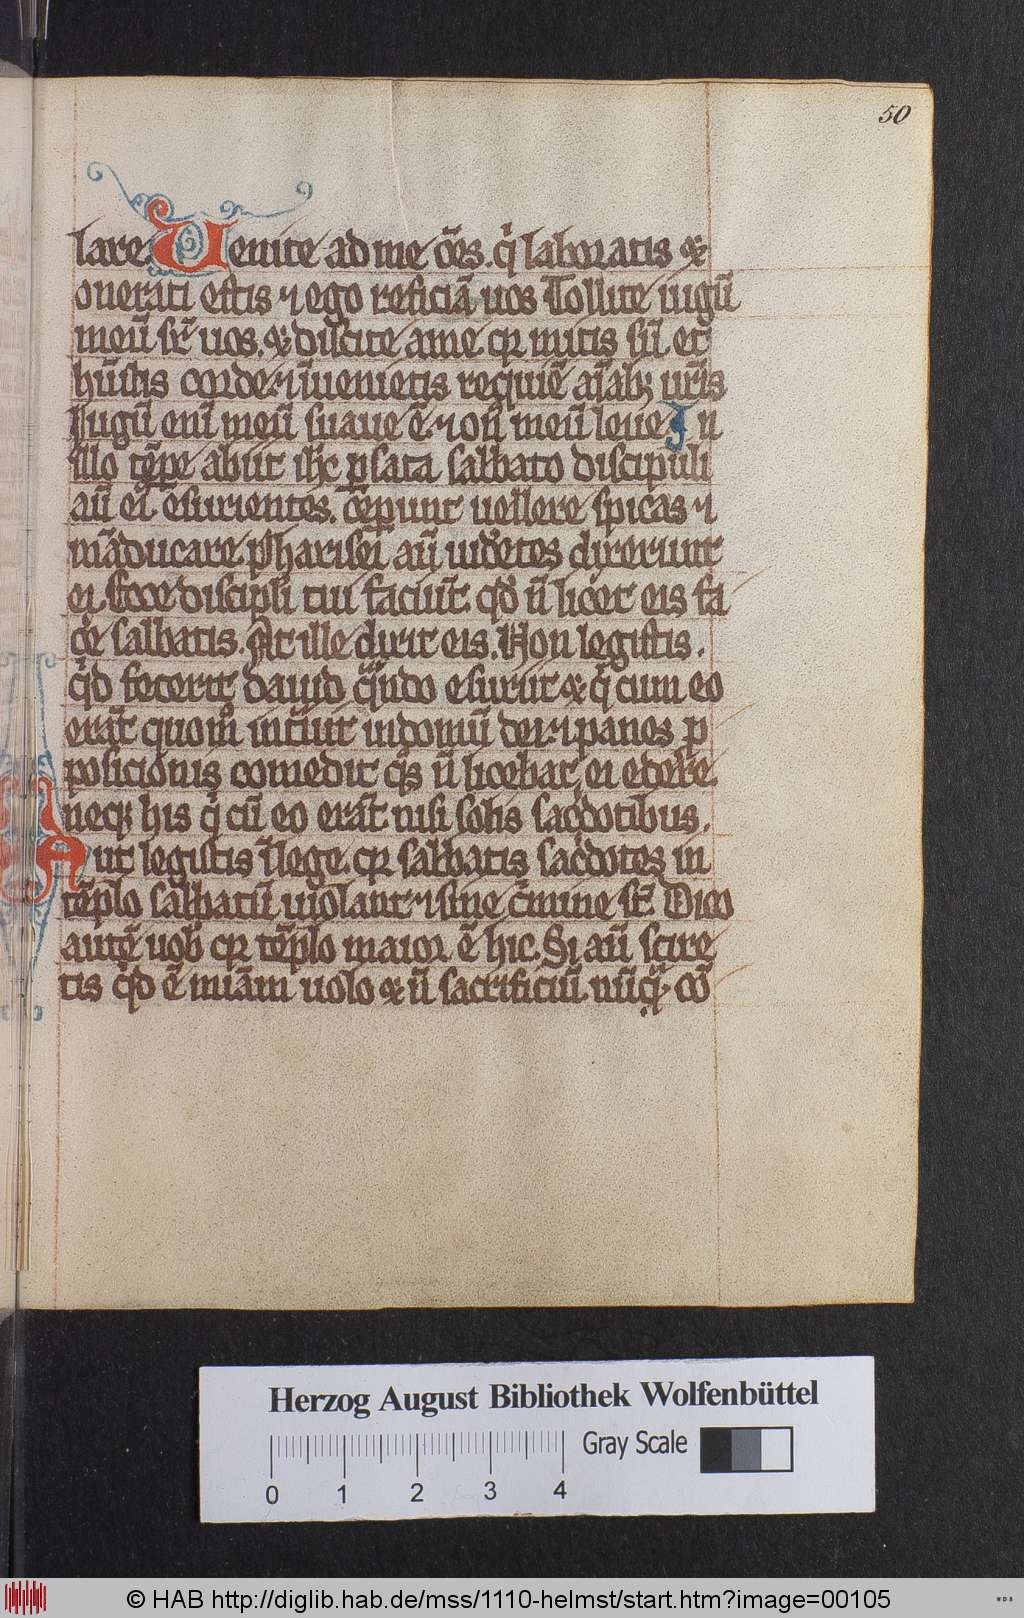 50
lare Venite ad me om̅s. qͥ laboratis ⁊
onerati estis ⁊ ego reficiā uos Tollite iugū
meū sr̄ uos. ⁊ discite ame qꝛ mitis sū et
hūilis corde. ⁊ īuenietis requiē aīabꝫ ur̄is
Iugū enī meū suaue ē. ⁊ on̄ meū leue In
illo tēpe abiit ih̄c p sata sabbato discipuli
aū ei esurientes. cep̄unt uellere spicas ⁊
māducare pharisei aū uidētes dixerunt
ei. Ecce discipli tui faciūt. qd̄ n̄ licet eis fa
cͤe sabbatis. At ille dixit eis. Non legistis.
qͥd fecerit dauid qͣndo esuriit ⁊ qͥ cum eo
erāt quom̄ int̄uit in domū dei. ⁊ panes p
posicionis comedit qͦs n̄ licebat ei edere
neqꝫ his qͥ cū eo erāt nisi solis sacͤdotibus.
Aut legistis ī lege. qꝛ sabbatis sacͤdotes in
tēplo sabbatū uiolant ⁊ sine cͥmine st̄ Dico
autē uob̄ qꝛ tēplo maior ē hic. Si aū scire
tis qͥd ē miām uolo ⁊ n̄ sacrificiū nūqͣ. cō
Herzog August Bibliothek Wolfenbüttel
Gray Scale
0 1 2 3 4
© HAB http://diglib.hab.de/mss/1110-helmst/start.htm?image=00105